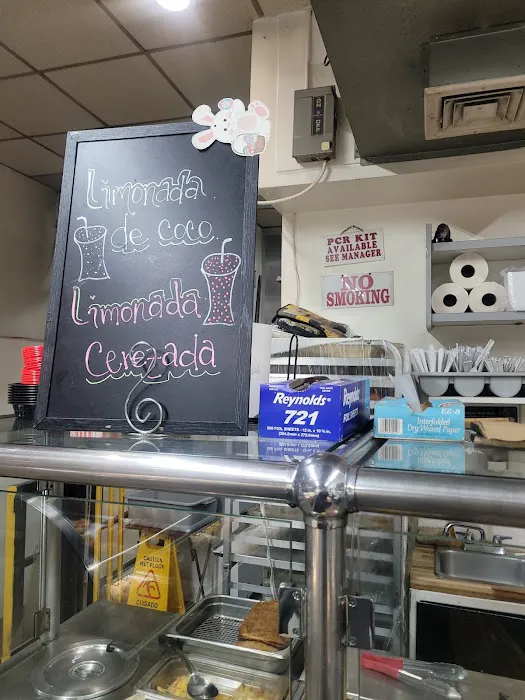 Limonada
de coco
Limonada
Cerezada
PCR KIT
AVAILABLE
SEE MANAGER
NO
SMOKING
Reynolds
721
EZ-8
Interfolded
Dry Waxed Paper
CAUTION
WET FLOOR
CUIDADO